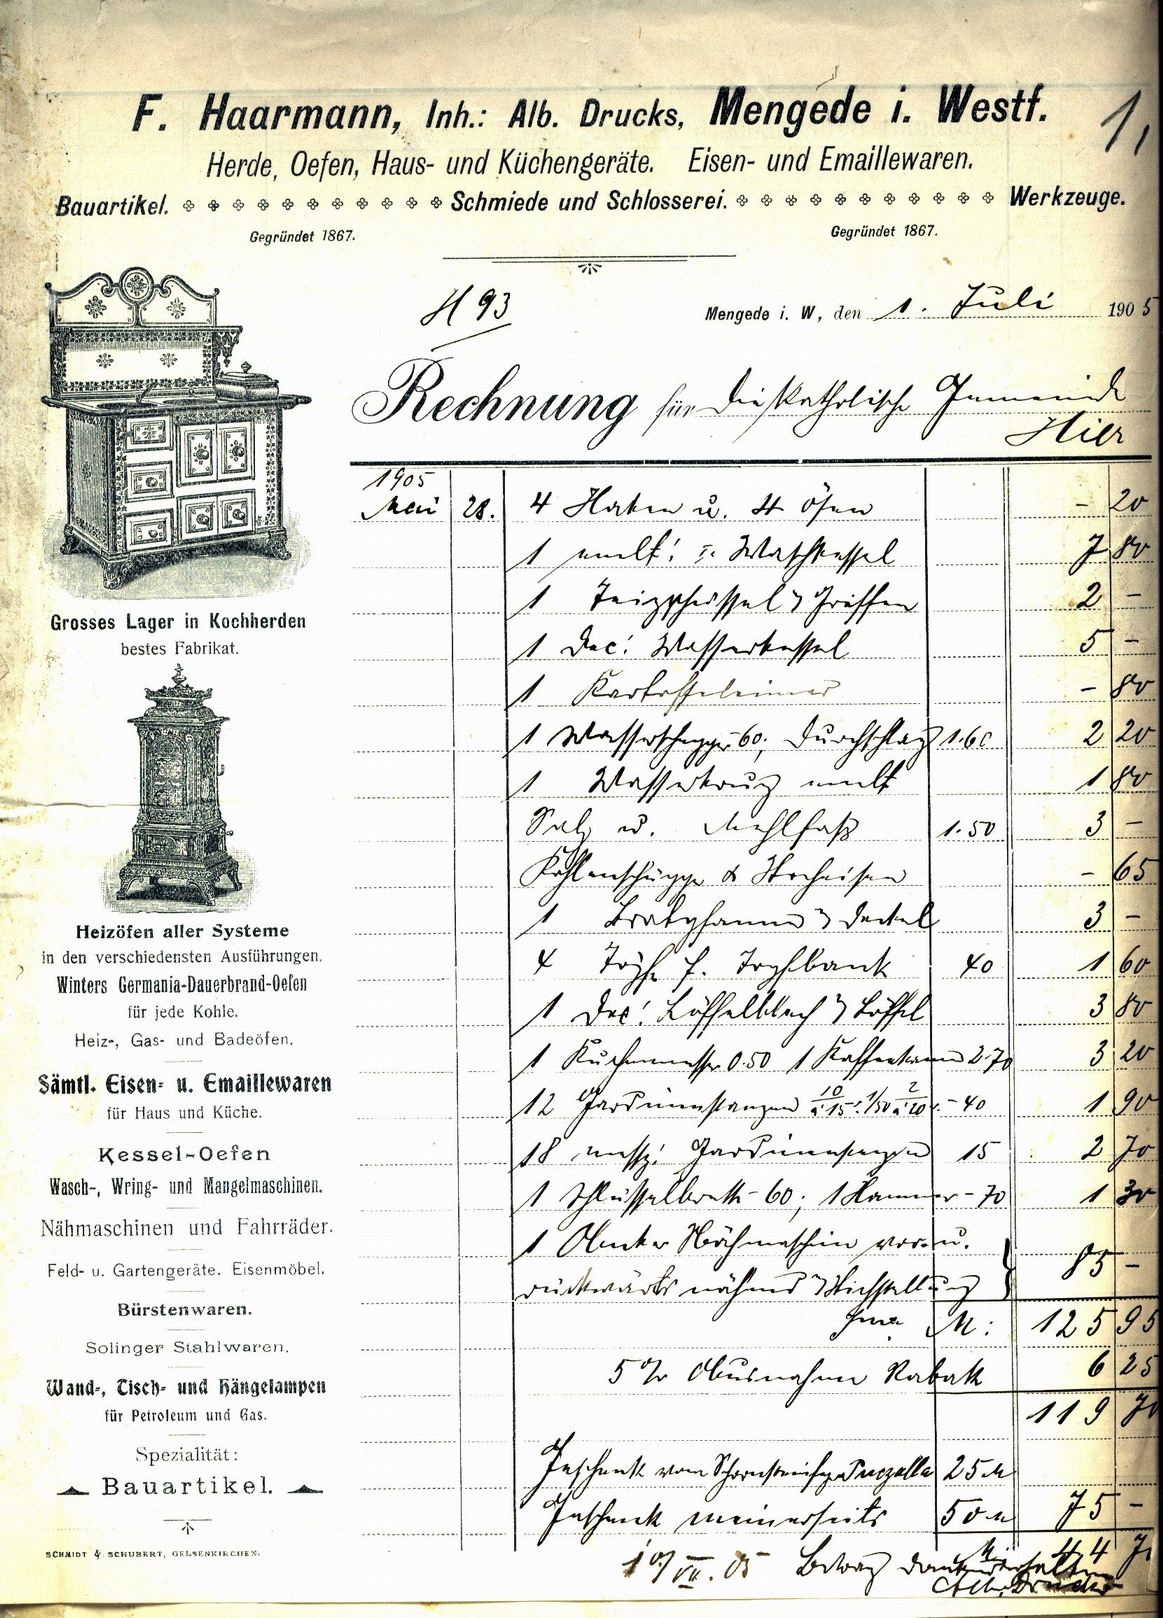 F. Haarmann, Inh.: Alb. Drucks, Mengede i. Westf.
1,
Herde, Oefen, Haus- und Küchengeräte. Eisen- und Emaillewaren.
Bauartikel. Schmiede und Schlosserei. Werkzeuge.
Gegründet 1867. Gegründet 1867.
H 93
Mengede i. W, den 1. Juli 1905
Rechnung für die Katholische Gemeinde
Hier
1905
Mai 28. 4 Haken u. 4 Ösen - 20
1 Waschkessel 7 80
1 2 -
1 Wasserkessel 5 -
1 Kartoffeleimer - 80
1 60; Durchschlag 1.60 2 20
1 Wasserkrug 1 80
Salz u. Mehlfaß 1.50 3 -
Kohlenschüppe & - 65
1 Deckel 3 -
4 Töpfe f. Topfbank 40 1 60
1 Löffelblech Löffel 3 80
1 Küchenmesser 0.50 1 Kaffeekanne 2.70 3 20
12 Gardinenstangen - 40 1 90
18 15 2 70
1 Schlüsselbrett - 60; 1 Hammer - 70 1 30
1 Nähmaschine vor- u.
rückwärts nähend 85 -
M: 125 95
5% Rabatt 6 25
119 70
Geschenk vom 25 M
Geschenk meinerseits 50 M 75 -
44 7
10/VII. 05 Betrag dankend erhalten
Alb. Drucks
Grosses Lager in Kochherden
bestes Fabrikat.
Heizöfen aller Systeme
in den verschiedensten Ausführungen.
Winters Germania-Dauerbrand-Oefen
für jede Kohle.
Heiz-, Gas- und Badeöfen.
Sämtl. Eisen- u. Emaillewaren
für Haus und Küche.
Kessel-Oefen
Wasch-, Wring- und Mangelmaschinen.
Nähmaschinen und Fahrräder.
Feld- u. Gartengeräte. Eisenmöbel.
Bürstenwaren.
Solinger Stahlwaren.
Wand-, Tisch- und Hängelampen
für Petroleum und Gas.
Spezialität:
Bauartikel.
SCHMIDT & SCHUBERT, GELSENKIRCHEN.